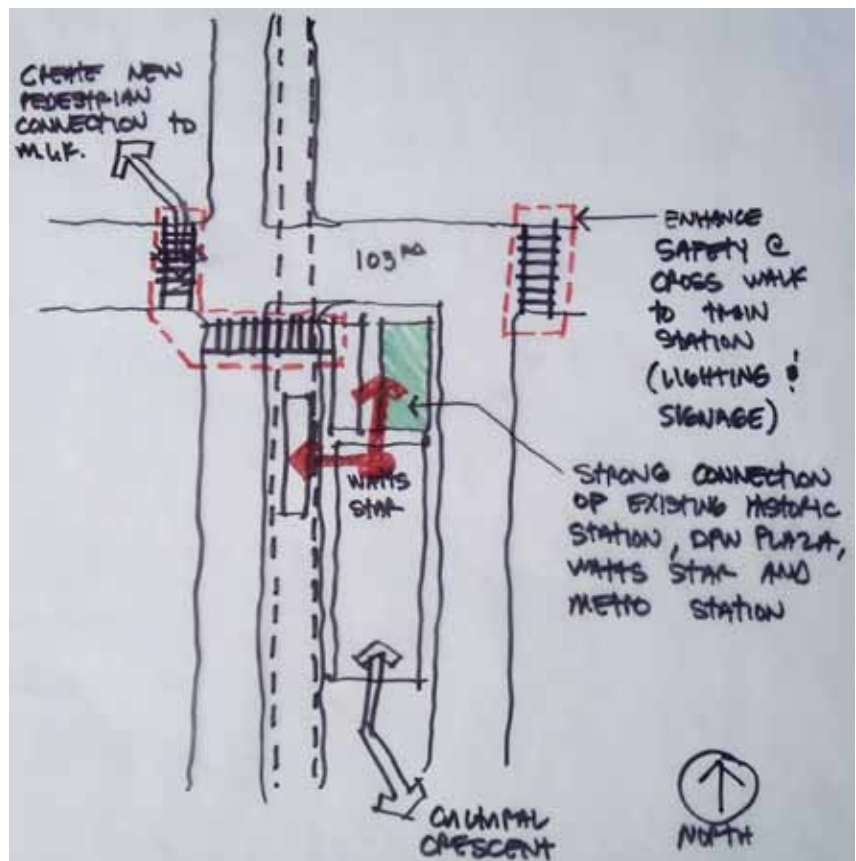 CREATE NEW
PEDESTRIAN
CONNECTION TO
M.L.K.
103RD
ENHANCE
SAFETY @
CROSS WALK
TO TRAIN
STATION
(LIGHTING &
SIGNAGE)
WATTS
STAR
STRONG CONNECTION
OF EXISTING HISTORIC
STATION, DPW PLAZA,
WATTS STAR AND
METRO STATION
CULTURAL
CRESCENT
NORTH